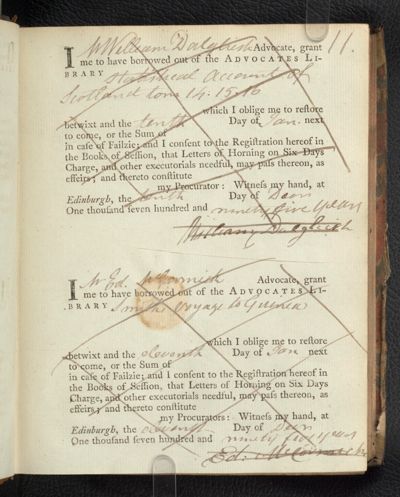 11.
I Mr William Dalgleish Advocate, grant
me to have borrowed out of the ADVOCATES LI-
BRARY Statistical Account of
Scotland tom 14. 15. 16
which I oblige me to reſtore
betwixt and the tenth Day of Jan. next
to come, or the Sum of
in caſe of Failzie; and I conſent to the Regiſtration hereof in
the Books of Seſſion, that Letters of Horning on Six Days
Charge, and other executorials needful, may paſs thereon, as
effeirs; and thereto conſtitute
my Procurator: Witneſs my hand, at
Edinburgh, the tenth Day of Decr
One thouſand ſeven hundred and ninety five years
William Dalgleish
I Mr Ed. McCormick Advocate, grant
me to have borrowed out of the ADVOCATES LI-
BRARY Smiths Voyage to Guinea
which I oblige me to reſtore
betwixt and the eleventh Day of Jan next
to come, or the Sum of
in caſe of Failzie; and I conſent to the Regiſtration hereof in
the Books of Seſſion, that Letters of Horning on Six Days
Charge, and other executorials needful, may paſs thereon, as
effeirs; and thereto conſtitute
my Procurators: Witneſs my hand, at
Edinburgh, the eleventh Day of Decr
One thouſand ſeven hundred and ninety five years
Ed. McCormick